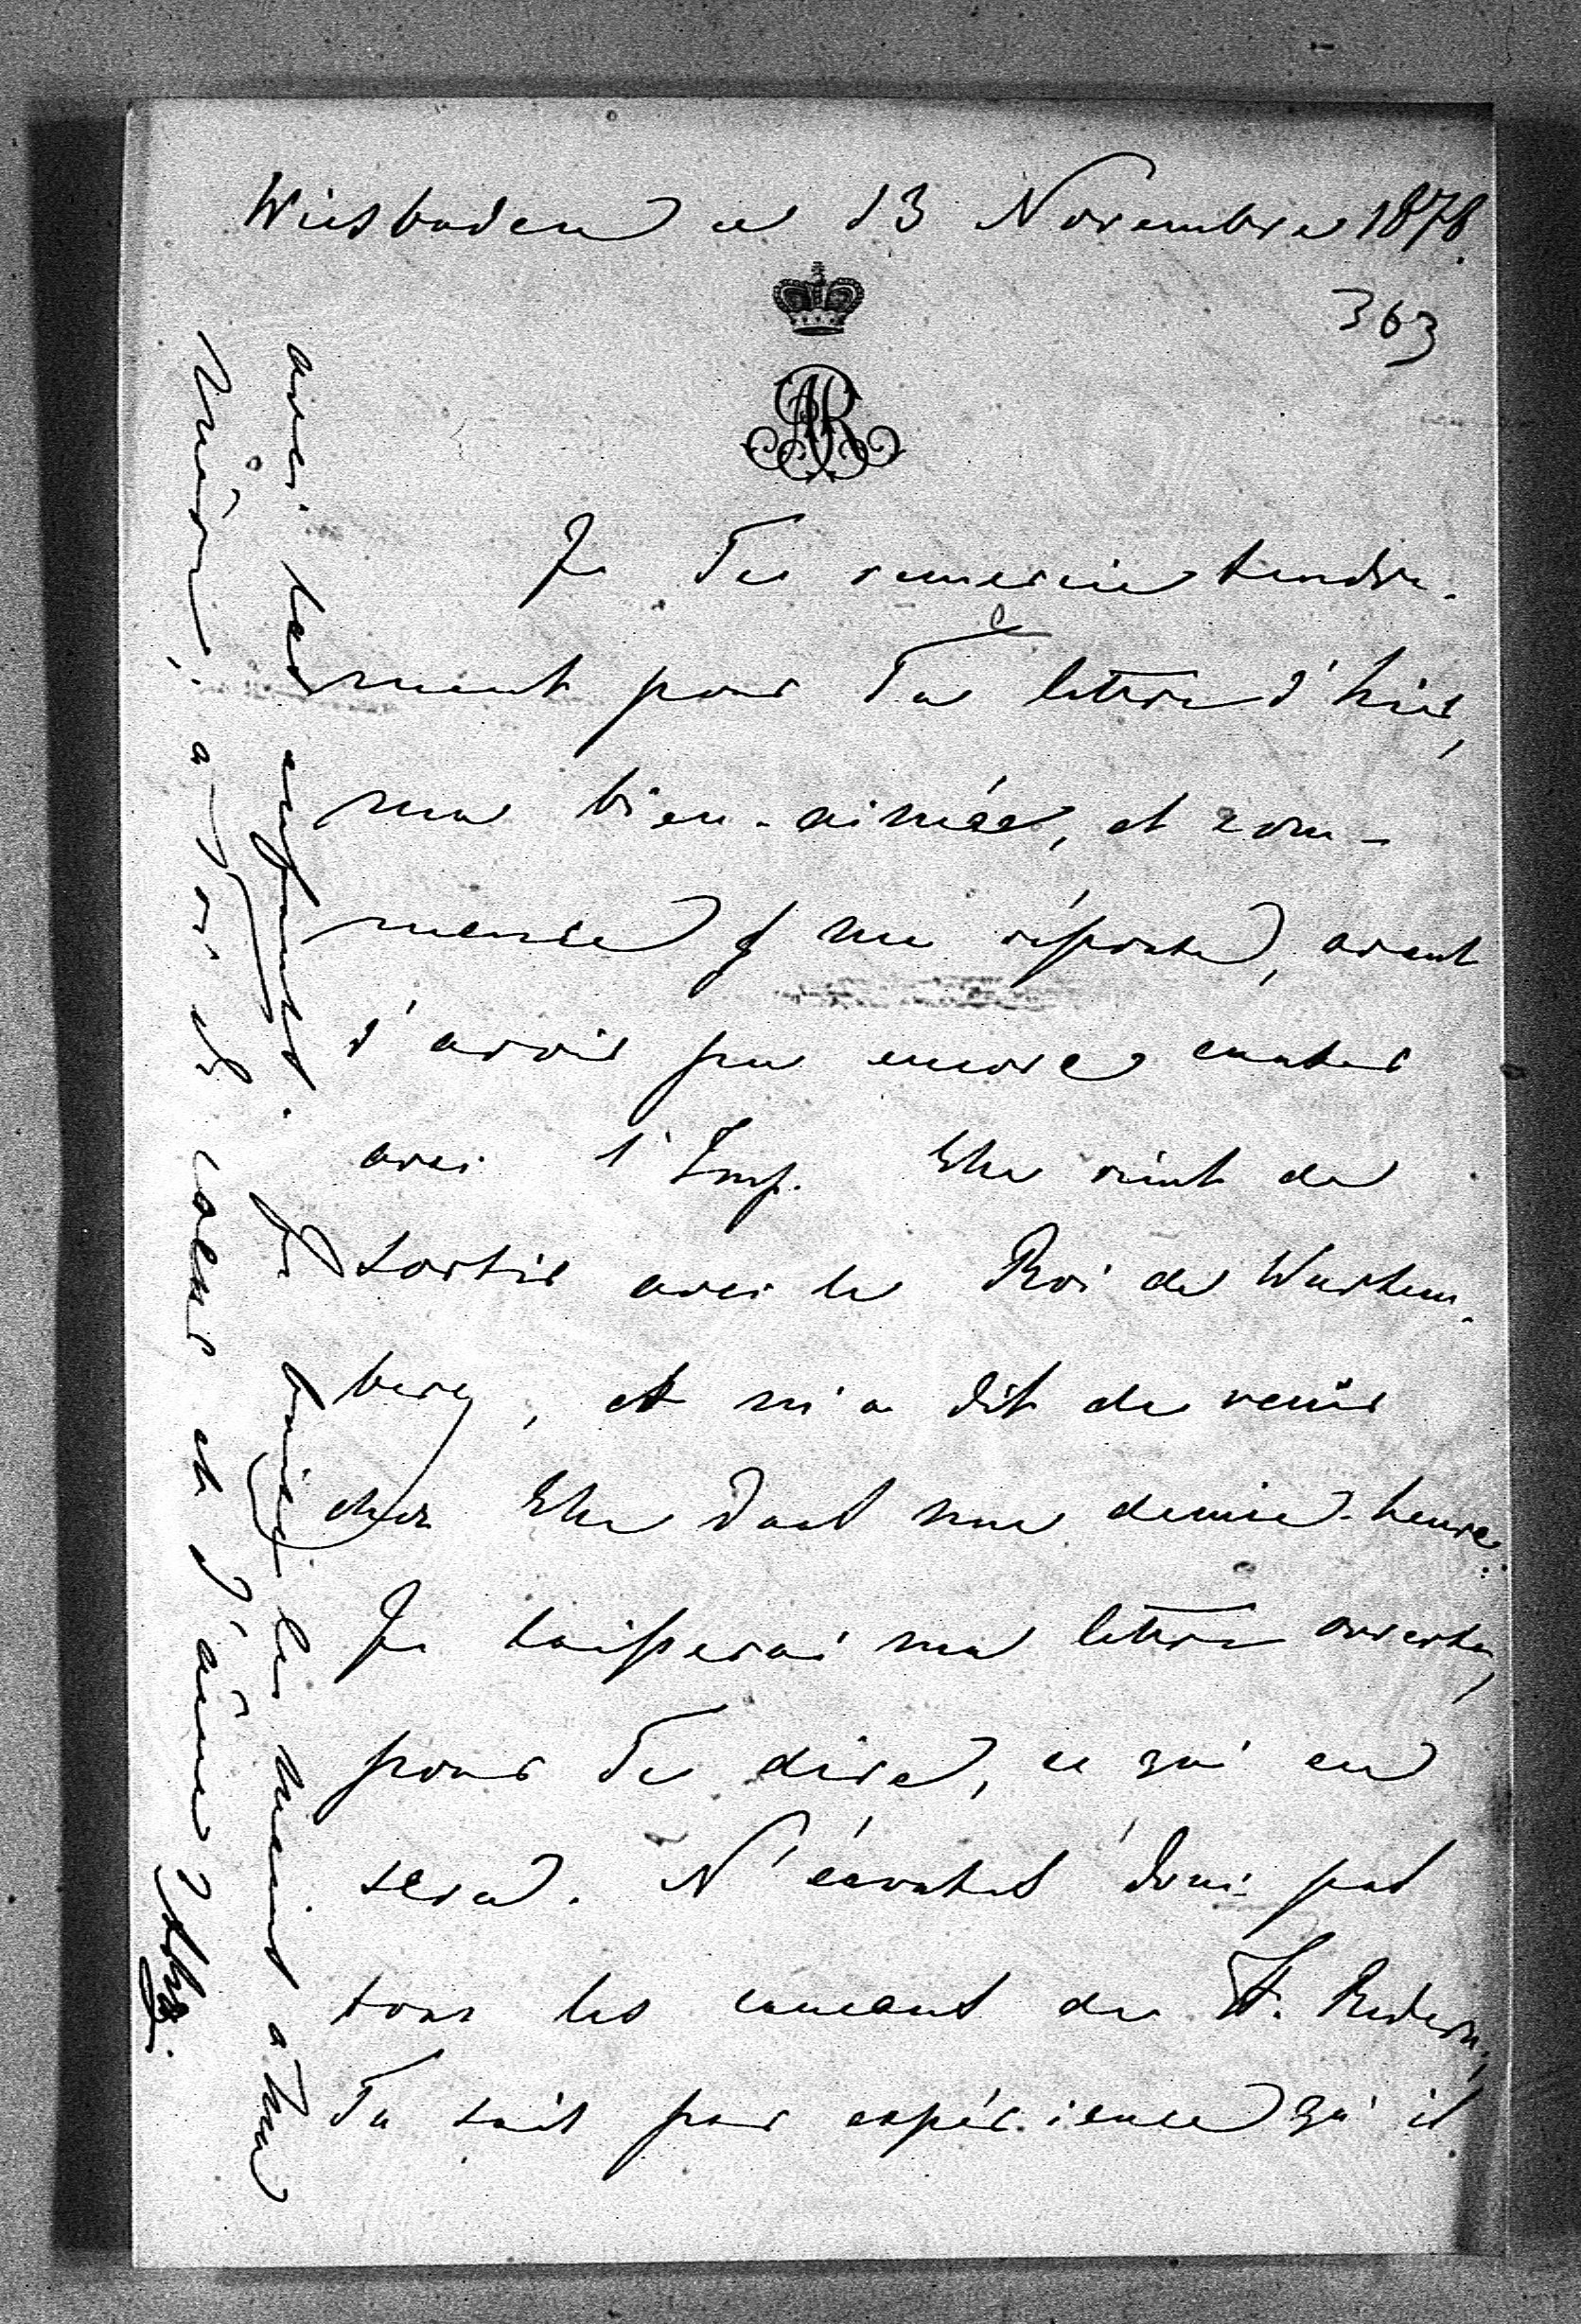 Wiesbaden ce 13 Novembre 1878.
363
AR
Je Te remercie tendre-
ment pour Ta lettre d'hier,
ma bien-aimée, et com-
mence ma réponse, avant
d'avoir pu encore causer
avec l'Imp. Elle vient de
sortir avec le Roi de Wurtem-
berg, et m'a dit de venir
chez Elle dans une demie-heure.
Je laisserai ma lettre ouverte,
pour Te dire, ce qui en
sera. N'écoutes donc pas
tous les cancans de H. Redern,
Tu sais par expérience qu'il
avec les enfants. Je baise les mains à Maman
à Toi de coeur et d'âme